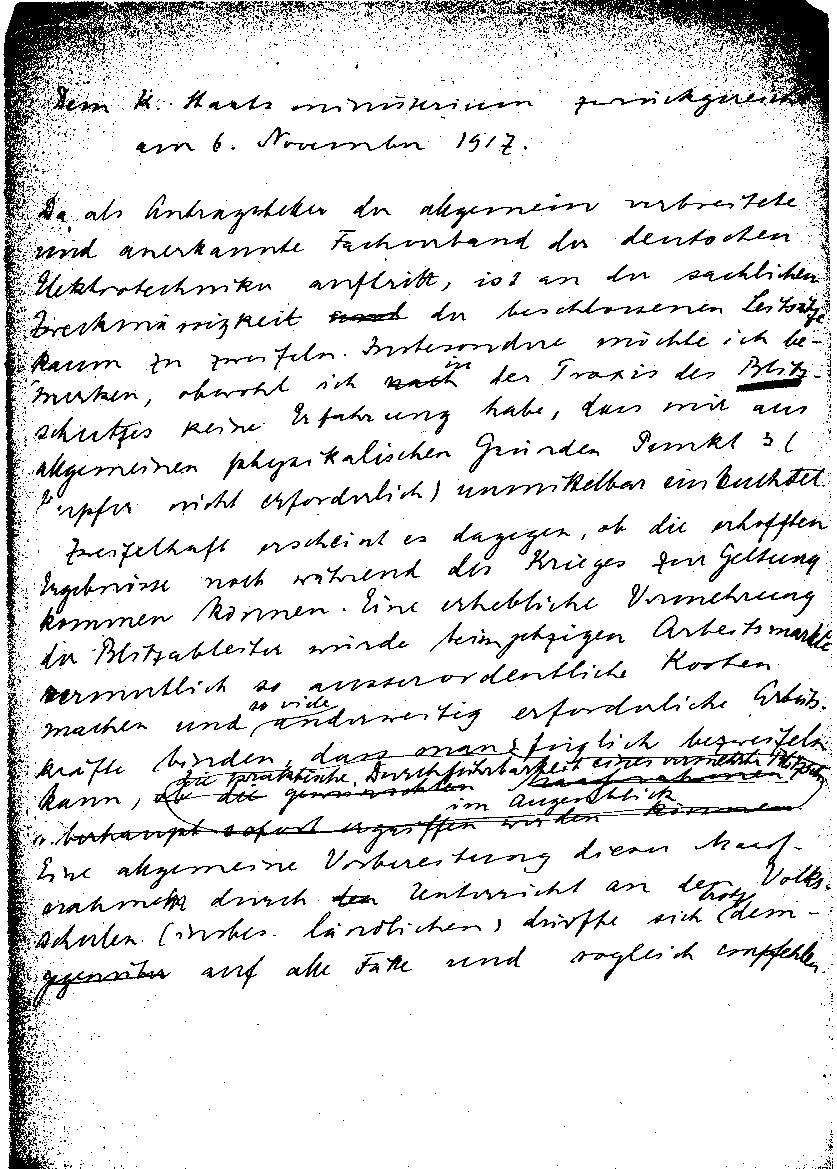 Dem K. Staatsministerium zurückgereicht
am 6. November 1917.
Da als Antragsteller der allgemein verbreitete
und anerkannte Fachverband der deutschen
Elektrotechniker auftritt, ist an der sachlichen
Zweckmässigkeit und der beschlossenen Leitsätze
kaum zu zweifeln. Insbesondere möchte ich be-
merken, obwohl ich nach in der Praxis des Blitz-
schutzes keine Erfahrung habe, dass mir aus
allgemeinen physikalischen Gründen Punkt 3 (
nicht erforderlich) unmittelbar einleuchtet
Zweifelhaft erscheint es dagegen, ob die erhofften
Ergebnisse noch während des Krieges zur Geltung
kommen können. Eine erhebliche Vermehrung
der Blitzableiter würde beim jetzigen Arbeitsmarkte
vermutlich so ausserordentliche Kosten
machen und so viele anderweitig erforderliche Arbeits-
kräfte binden, dass man füglich bezweifeln
die praktische Durchführbarkeit eines vermehrten
kann, ob die gewünschten Maassnahmen
im Augenblick
überhaupt sofort ergriffen werden können
Eine allgemeine Vorbereitung dieser Maass-
nahmen durch den Unterricht an den Volks-
schulen (insbes. ländlichen) dürfte sich trotzdem-
gegenüber auf alle Fälle und sogleich empfehlen.